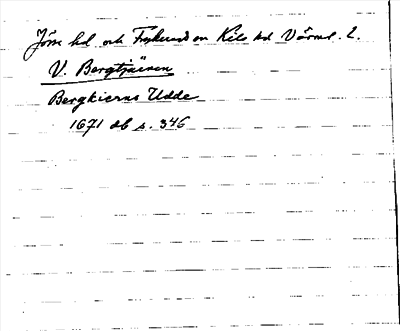 Jösse hd. och Fryksd. on Kils hd Värml. l.
V. Bergtjärnen
Bergkierns Udde
1671 db s. 346